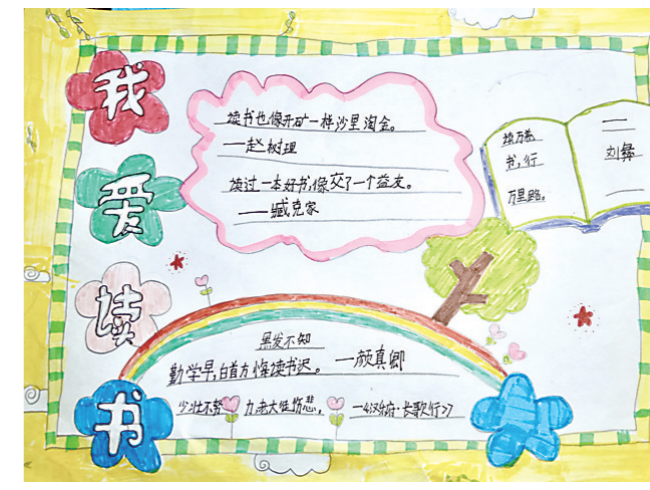 我
爱
读
书
读书也像开矿一样沙里淘金。
——赵树理
读过一本好书,像交了一个益友。
——臧克家
读万卷
书,行
万里路。
——
刘彝
——
黑发不知
勤学早,白首方悔读书迟。 —颜真卿
少壮不努力老大徒伤悲, —《汉乐府·长歌行》